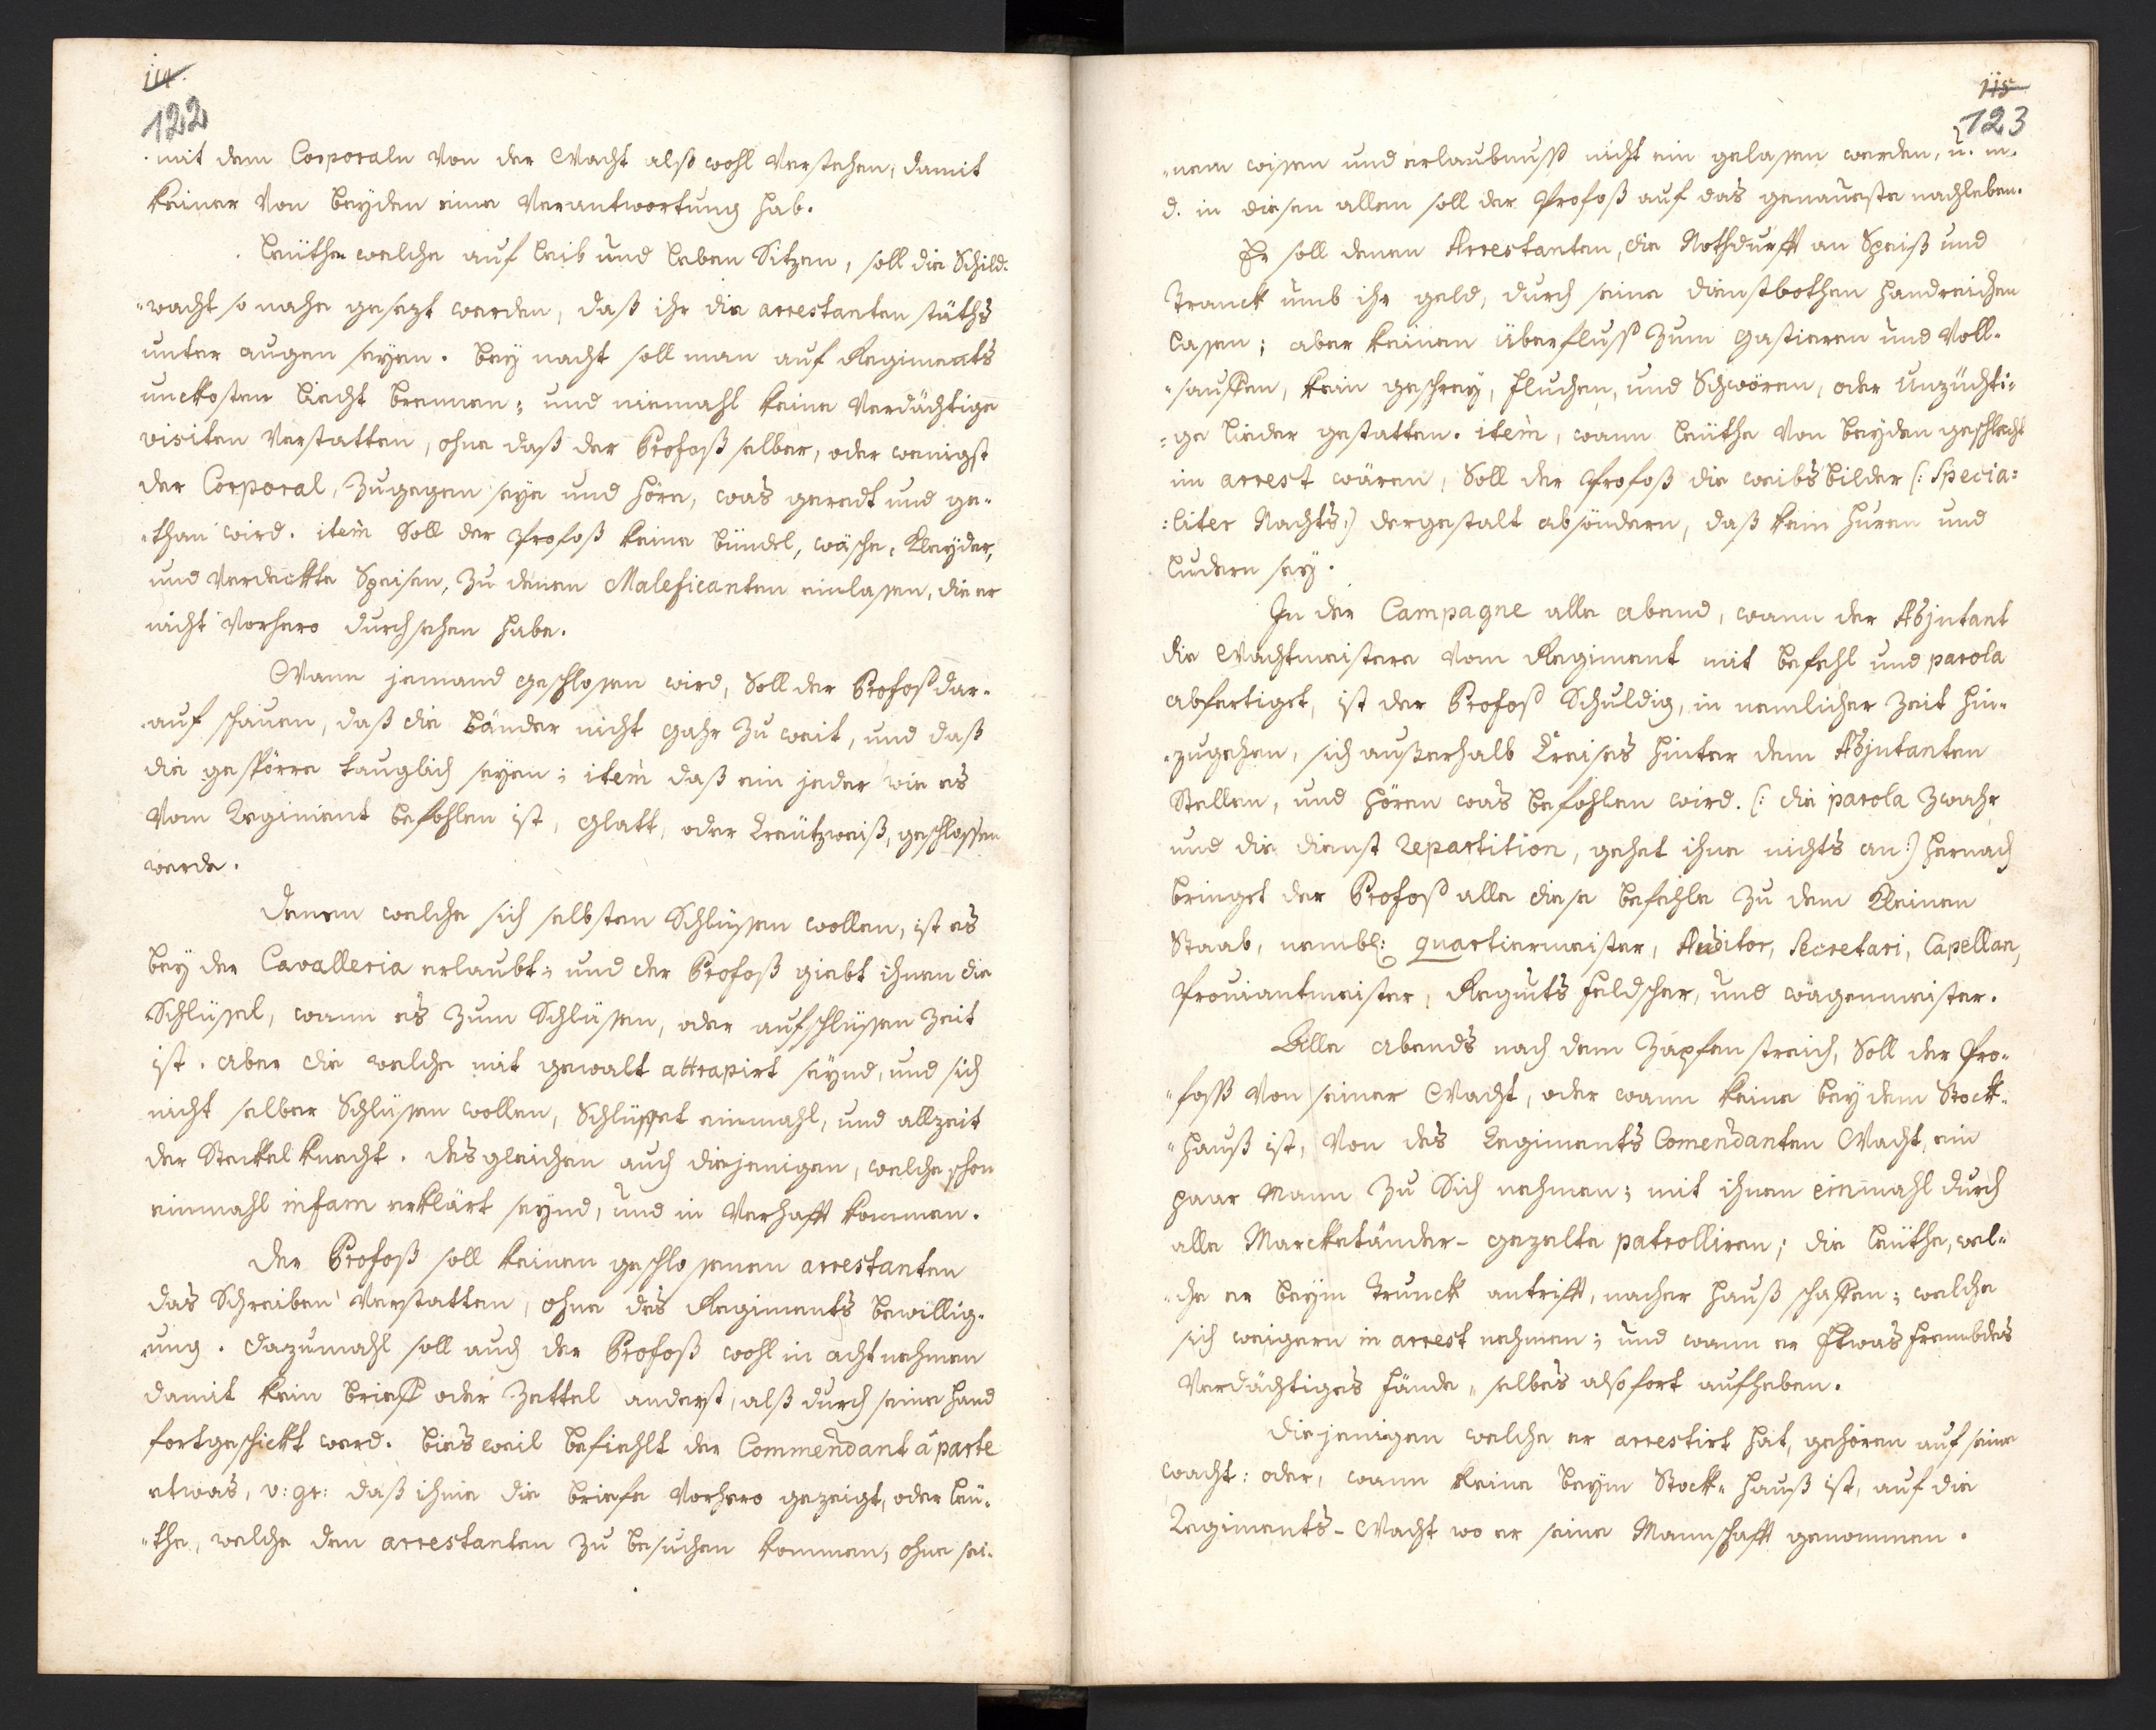 114.
122
mit dem Corporaln von der Wacht alß wohl verstehen, damit
keiner von beyden eine verantwortung hab.
Leüthe welche auf leib und leben Sitzen, soll die Schild-
wacht so nahe gesezt werden, daß ihr die arrestanten stäths
unter augen seyen. bey nacht soll man auf Regiments
unckosten liecht brennen; und niemahl keine verdächtige
visiten verstatten, ohne daß der Profoß selber, oder wenigst
der Corporal, zugegen seye und höre, was geredt und ge-
than wird. item Soll der Profoß keine bündel, wäsche, Kleyder,
und verdeckte Speisen, zu denen Maleficanten einlassen, die er
nicht vorhero durchsehen habe.
Wann jemand geschlossen wird, Soll der Profoß dar-
auf schauen, daß die bänder nicht gahr zu weit, und daß
die gespörre tauglich seyen; item daß ein jeder wie es
vom Regiment befohlen ist, glatt, oder Creützweiß, geschlossen
werde.
denen welche sich selbsten Schlüssen wollen, ist es
bey der Cavalleria erlaubt; und der Profoß giebt ihnen die
Schlüssel, wann es zum Schlüssen, oder aufschlüssen zeit
ist. aber die welche mit gewalt attrapirt seynd, und sich
nicht selber Schlüssen wollen, Schlüsset einmahl, und allzeit
der Steckel Knecht. desgleichen auch diejenigen, welche schon
einmahl infam erklärt seynd, und in verhafft kommen.
der Profoß soll keinen geschlossenen arrestanten
das Schreiben verstatten, ohne des Regiments bewillig-
ung. dazumahl soll auch der Profoß wohl in acht nehmen
damit kein brieff oder Zettel anderst, alß durch seine hand
fortgeschickt werd. bisweil befiehlt der Commendant à parte
etwas, v: gr: daß ihme die briefe vorhero gezeigt, oder leü-
the, welche den arrestanten zu besuchen kommen, ohne sei-
115
123
nem wissen und erlaubnuß nicht ein gelassen werden, u. m.
d. in diesen allem soll der Profoß auf das genaueste nachleben.
Er soll denen Arrestanten, die Nothdurfft an Speiß und
Tranck umb ihr geld, durch seine dienstbothen handreichen
lassen; aber keinen überfluß zum gastieren und voll-
sauffen, kein geschrey, fluchen, und Schwören, oder unzüchti-
ge lieder gestatten. item, wann leüthe von beyden geschlecht
im arrest wären, Soll der Profoß die weibsbilder (: Specia:
:liter Nachts :) dergestalt absöndern, daß kein huren und
ludern sey.
In der Campagne alle abend, wann der Adjutant
die Wachtmeistere vom Regiment mit befehl und parola
abfertiget, ist der Profoß Schuldig, in nemlicher zeit hin-
zugehen, sich außerhalb Creises hinter dem Adjutanten
Stellen, und hören was befohlen wird. (: die parola zwahr
und die dienst repartition, gehet ihne nichts an :) hernach
bringet der Profoß alle diese befehle zu dem Kleinen
Staab, nembl: quartiermeister, Auditor, Secretari, Capellan,
Proviantmeister, Regmts feldscher, und wägenmeister.
Alle abends nach dem Zapfenstreich, Soll der Pro-
foß von seiner Wacht, oder wann keine bey dem Stock-
hauß ist, von des Regiments Comendanten Wacht, ein
paar Mann zu Sich nehmen; mit ihnen einmahl durch
alle Marcketänder- gezelte patrolliren; die leüthe, wel-
che er beym Trunck antrifft, nacher hauß schaffen; welche
sich weigern in arrest nehmen; und wann er Etwas frembdes
verdächtiges fände, selbes alsofort aufheben.
diejenigen welche er arrestirt hat, gehören auf seine
wacht: oder, wann keine beym Stock-hauß ist, auf die
Regiments- Wacht wo er seine Mannschafft genommen.